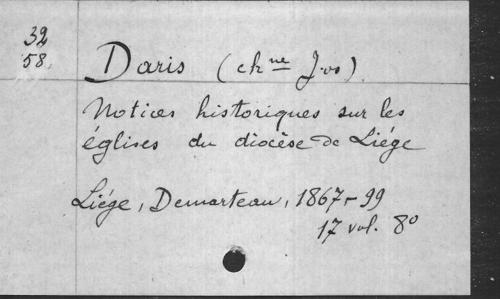 32
58.
Daris (chne J.os)
Notices historiques sur les
églises du diocèse de Liége
Liége, Demarteau, 1867-99
17 vol. 8º